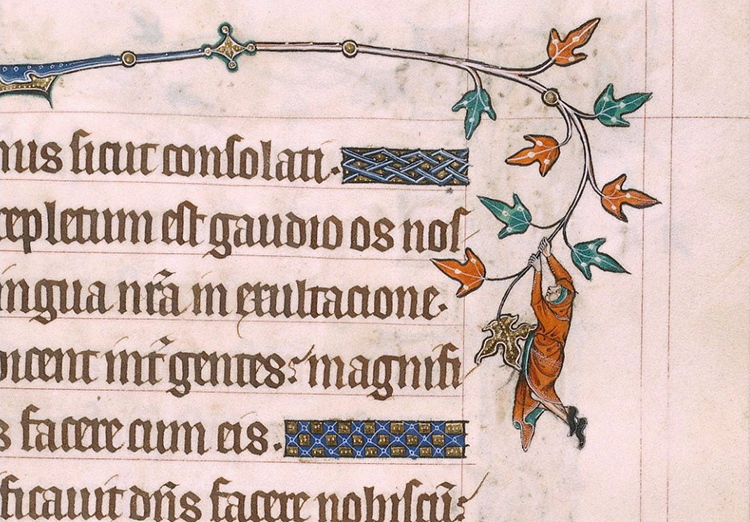 nus sicut consolati.
repletum est gaudio os nos
ingua nr̃a in exultacione.
dicent int̃ gentes: magnifi
s facere cum eis.
ficauit dñs facere nobiscũ: